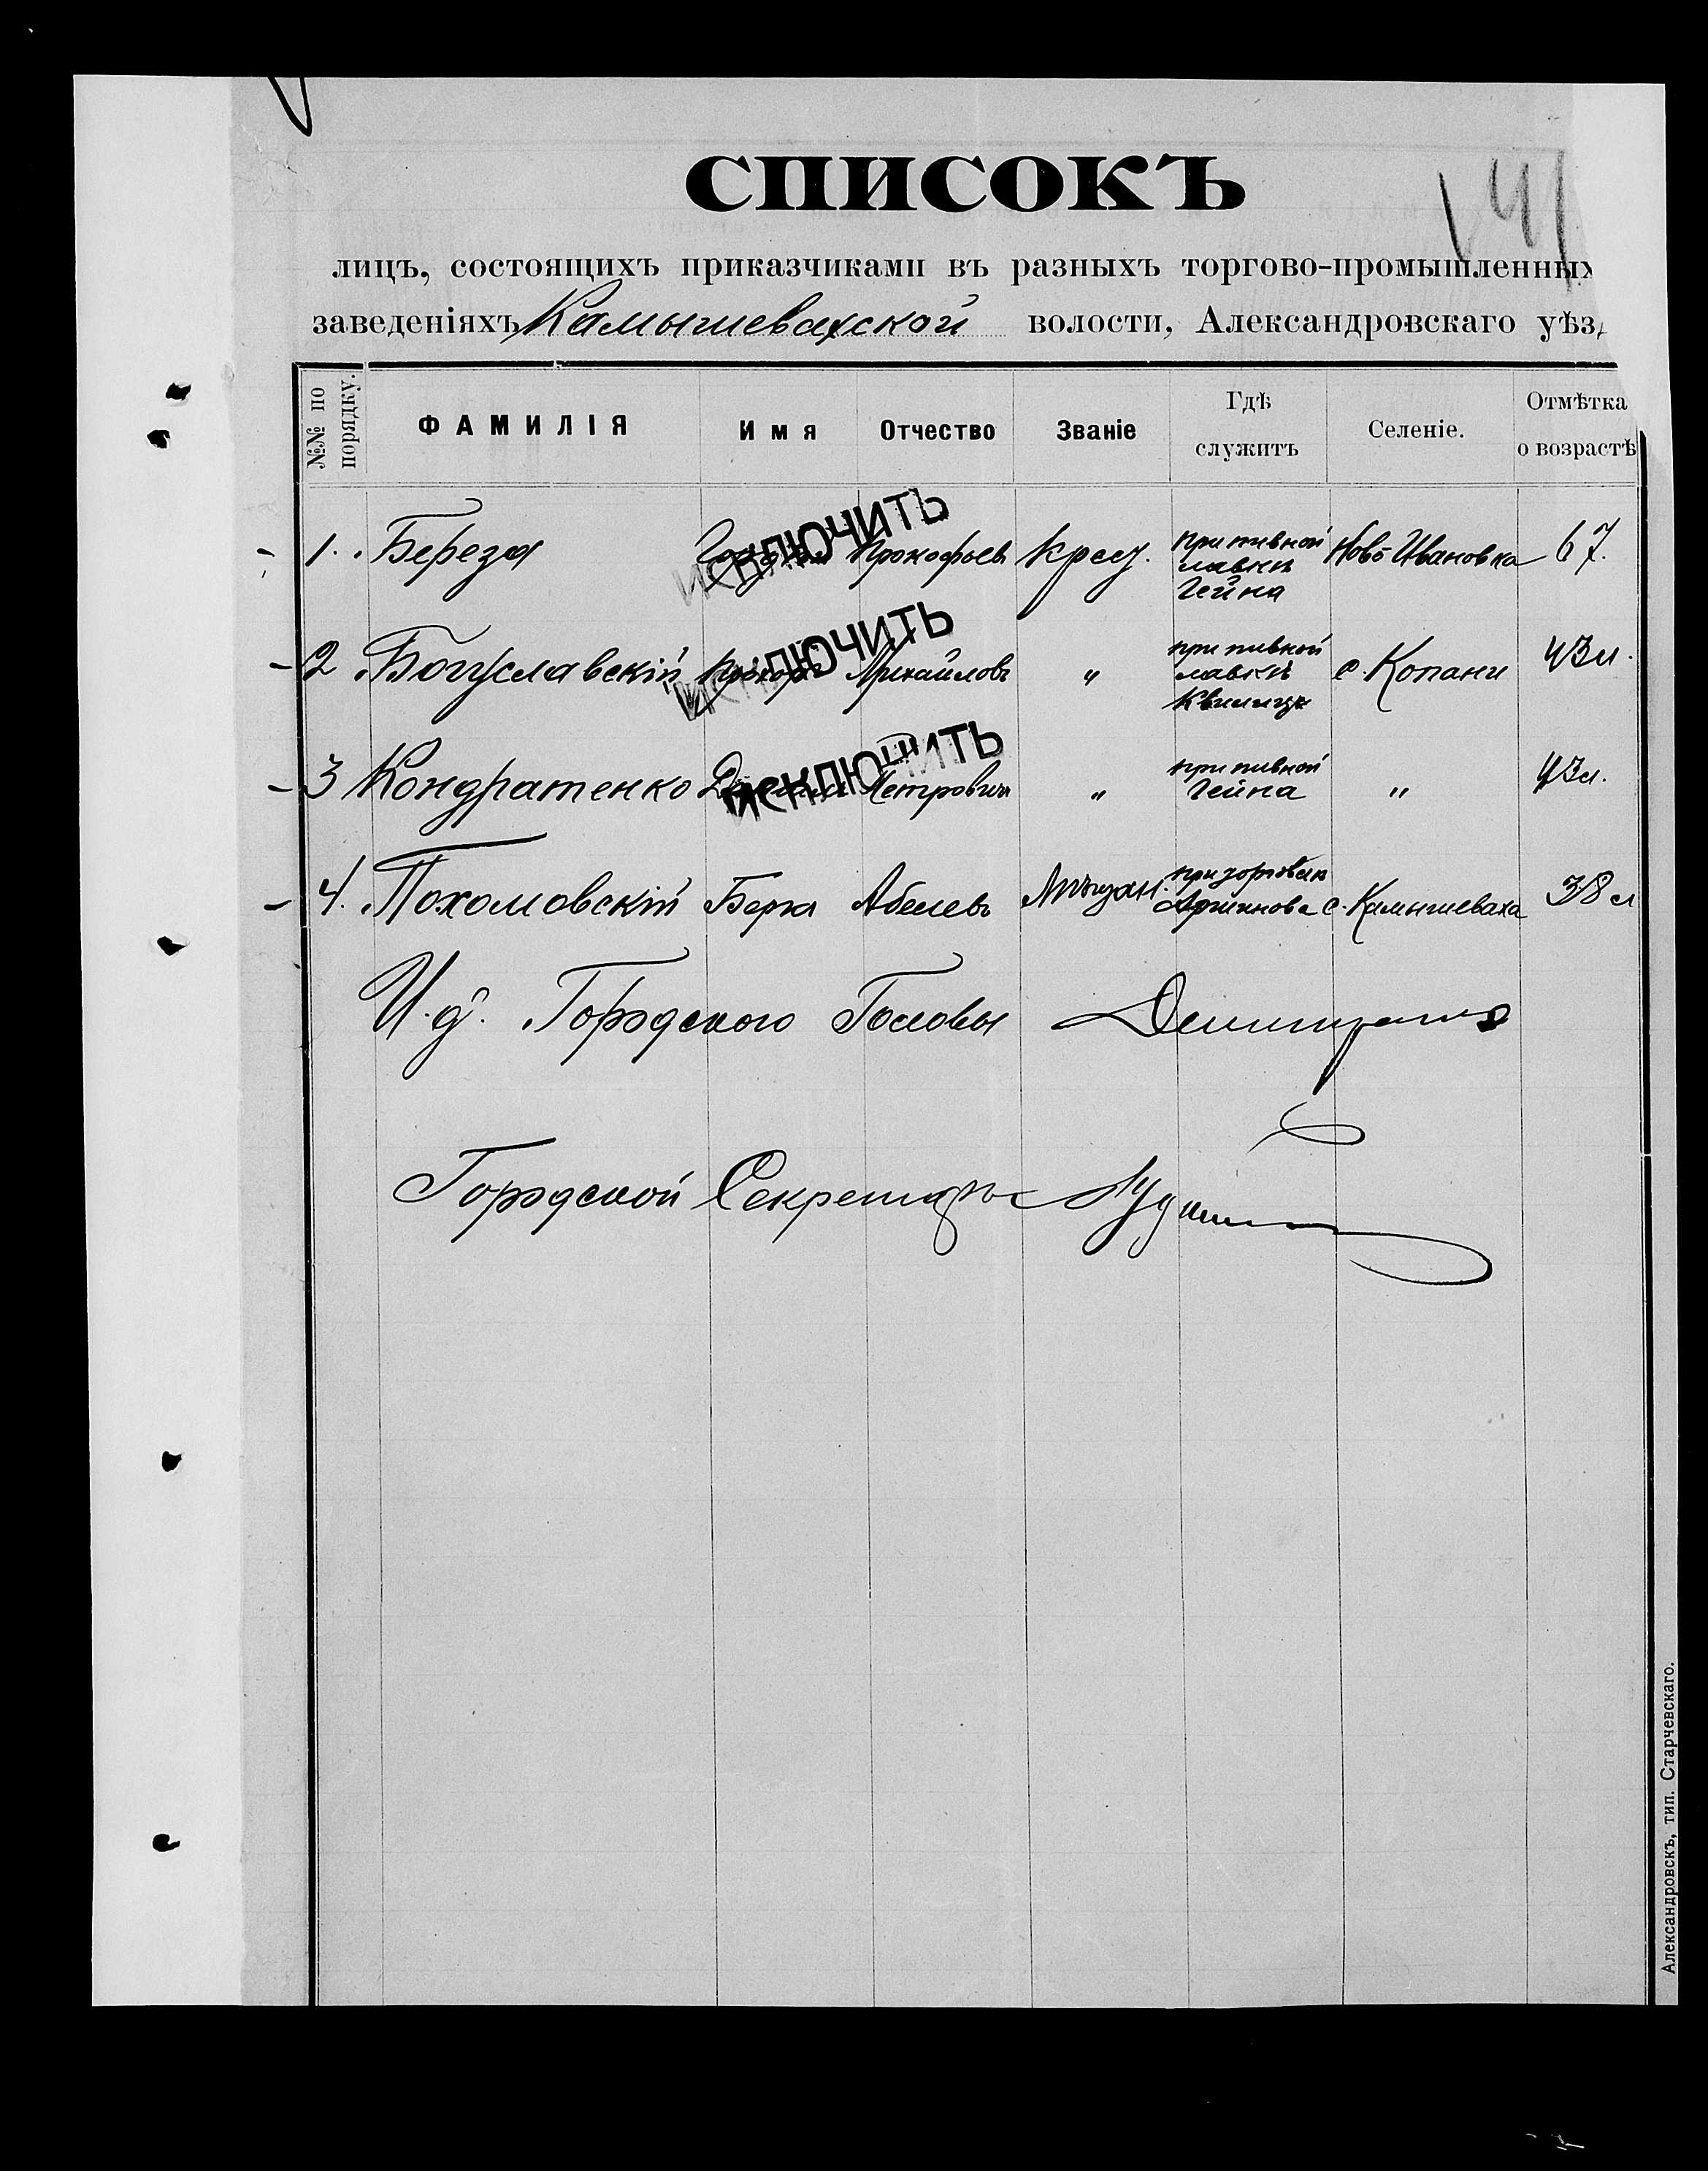 141
СПИСОКЪ
лицъ, состоящихъ приказчиками въ разныхъ торгово-промышленных
заведеніяхъ Камышевахской волости, Александровскаго уѣз
№№ по порядку. ФАМИЛІЯ Имя Отчество Званіе Гдѣ служитъ Селеніе. Отмѣтка о возрастѣ
1. Береза Прокофьев крест. При пивной лавки Гейна Ново Ивановка 67.
ИСКЛЮЧИТЬ
2 Богуславскій Прокоръ Михайловъ " при пивной лавкѣ с. Копани 43 л.
ИСКЛЮЧИТЬ
3 Кондратенко Петровичъ " при пивной Гейна " 43 л.
ИСКЛЮЧИТЬ
4. Похомовскій Берка Абелевъ Мѣщан. при торговли Аршинова с. Камышеваха 38 л
И.д. Городского Головы
Городской Секретарь
Александровскъ, тип. Старчевскаго.